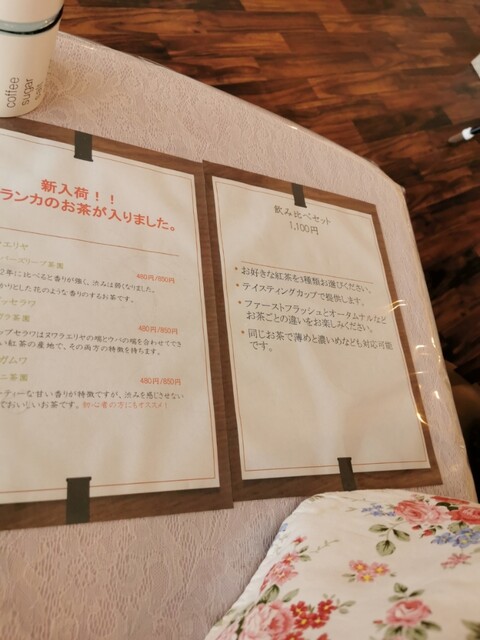 coffee
sugar
新入荷！！
ランカのお茶が入りました。
エリヤ
バーズリーブ茶園
480円/850円
2年に比べると香りが強く、渋みは弱くなりました。
かりとした花のような香りのするお茶です。
ッセラワ
480円/850円
ップセラワはヌワラエリヤの畑とウバの畑を合わせてでき
い紅茶の産地で、その両方の特徴を持ちます。
ガムワ
ニ茶園
480円/850円
ーティーな甘い香りが特徴ですが、渋みを感じさせない
でおいしいお茶です。初心者の方にもオススメ！
飲み比べセット
1,100円
・お好きな紅茶を3種類お選びください。
・テイスティングカップで提供します。
・ファーストフラッシュとオータムナルなど
お茶ごとの違いをお楽しみください。
・同じお茶で薄めと濃いめなども対応可能
です。